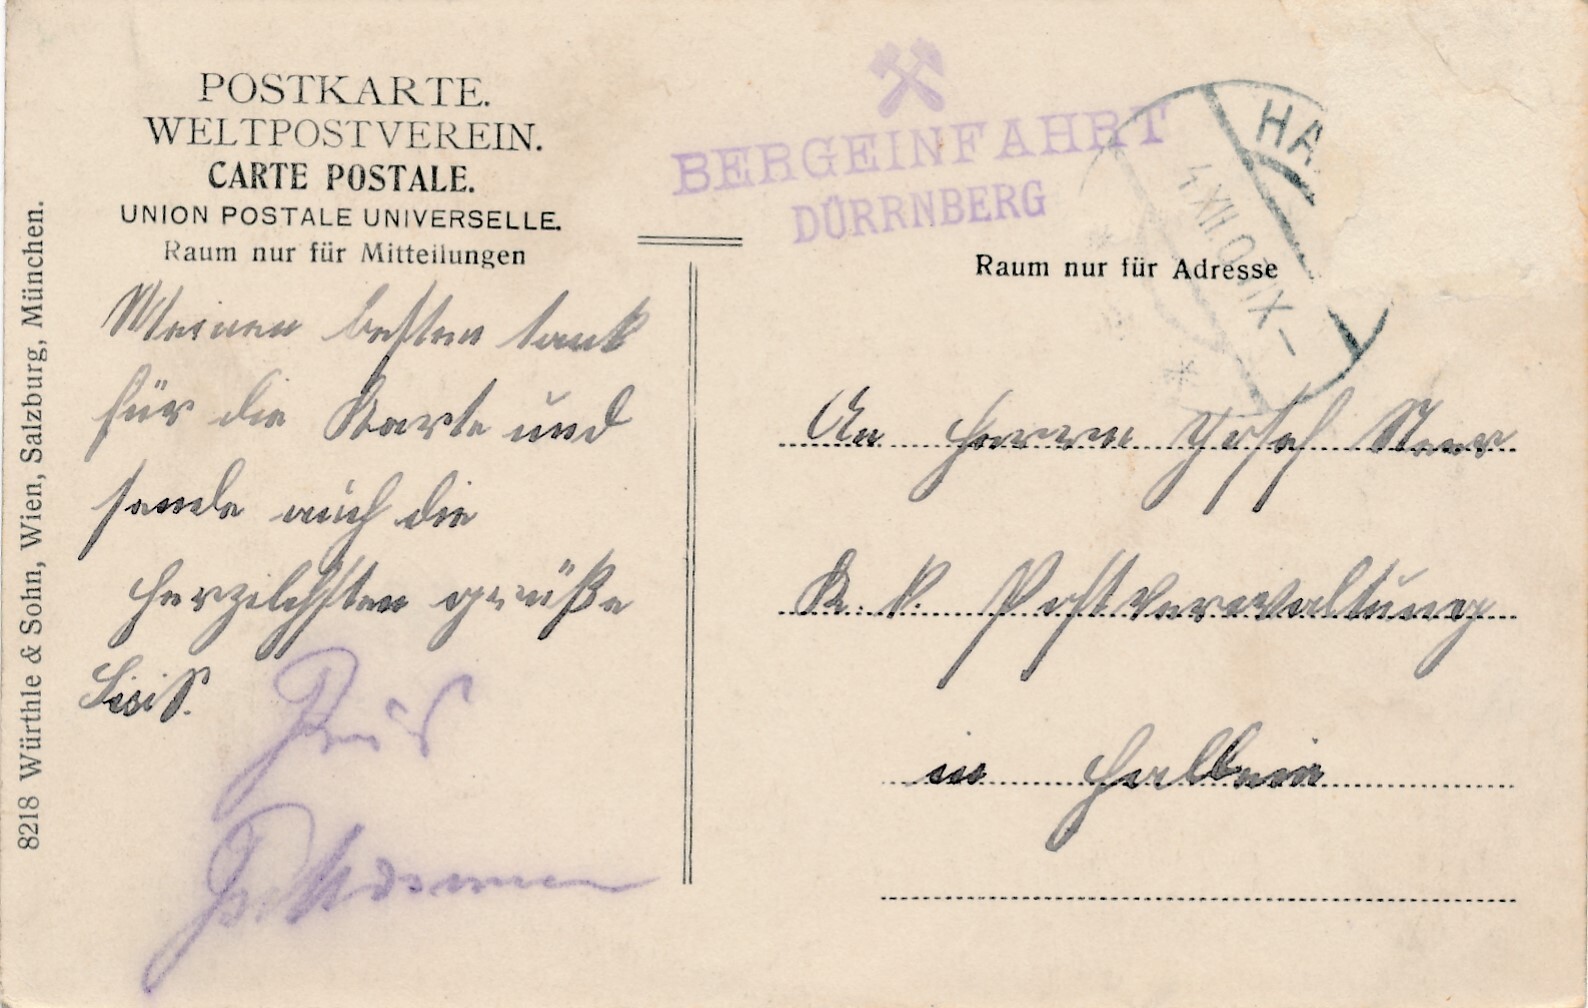 POSTKARTE.
WELTPOSTVEREIN.
CARTE POSTALE.
UNION POSTALE UNIVERSELLE.
Raum nur für Mitteilungen
Meinen besten tank
für die Karte und
sende auch die
herzilchsten grüße
BERGEINFAHRT
DÜRRNBERG
HA
4 XII 0 IX-
Raum nur für Adresse
An Herrn Josef
K. K. Postverwaltung
in Hallein
8218 Würthle & Sohn, Wien, Salzburg, München.